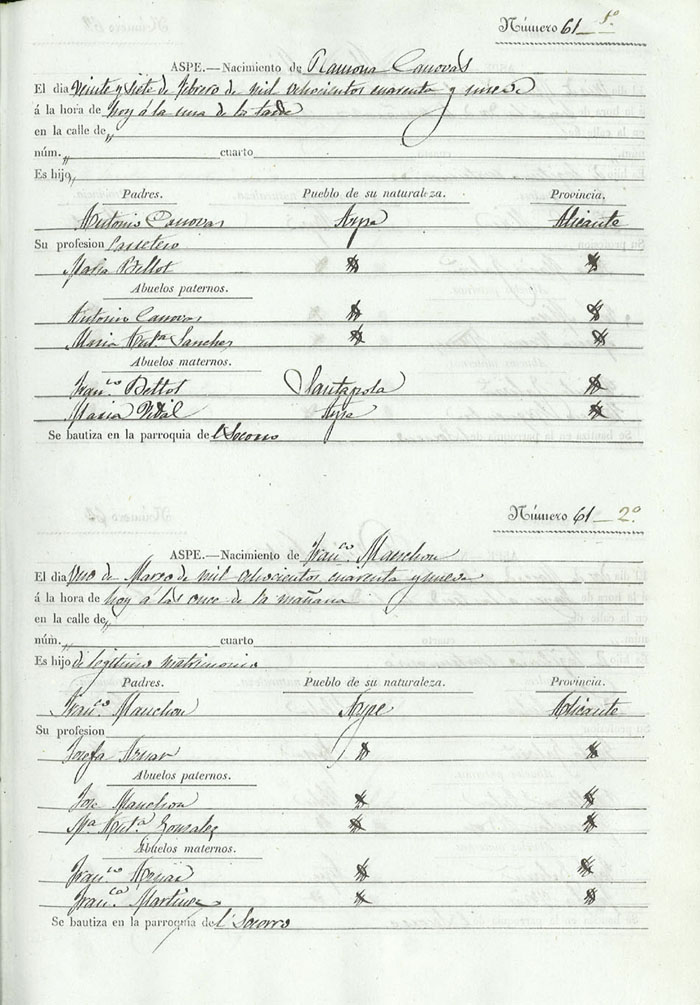 Número 61 1º
ASPE.—Nacimiento de Ramona Canovas
El dia veinte y siete de febrero de mil ochocientos cuarenta y nueve
á la hora de hoy á la una de la tarde
en la calle de „
núm. „ cuarto
Es hijo „
Padres. Pueblo de su naturaleza. Provincia.
Antonio Canovas Aspe Alicante
Su profesion Carretero
Maria Bellot
Abuelos paternos.
Antonio Canovas
Maria Antª Sanchez
Abuelos maternos.
Franco Bellot Santapola
Maria Vidal Aspe
Se bautiza en la parroquia del Socorro
Número 61 2º
ASPE.—Nacimiento de Franco Manchon
El dia Uno de Marzo de mil ochocientos cuarenta y nueve
á la hora de hoy á las once de la mañana
en la calle de „
núm. „ cuarto
Es hijo de legitimo matrimonio
Padres. Pueblo de su naturaleza. Provincia.
Franco Manchon Aspe Alicante
Su profesion
Josefa Aznar
Abuelos paternos.
Jose Manchon
Mª Antª Gonzalez
Abuelos maternos.
Franco Aznar
Franca Martinez
Se bautiza en la parroquia del Socorro